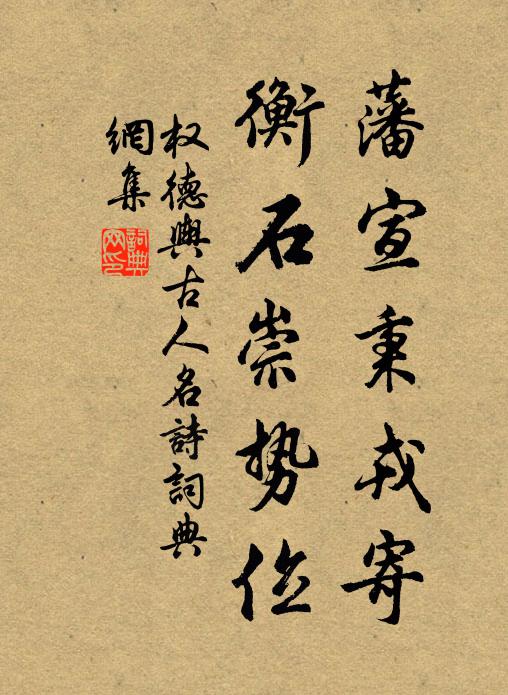 藩宣秉戎寄
衡石崇势位
权德輿古人名詩詞典
網集
詞典
网印